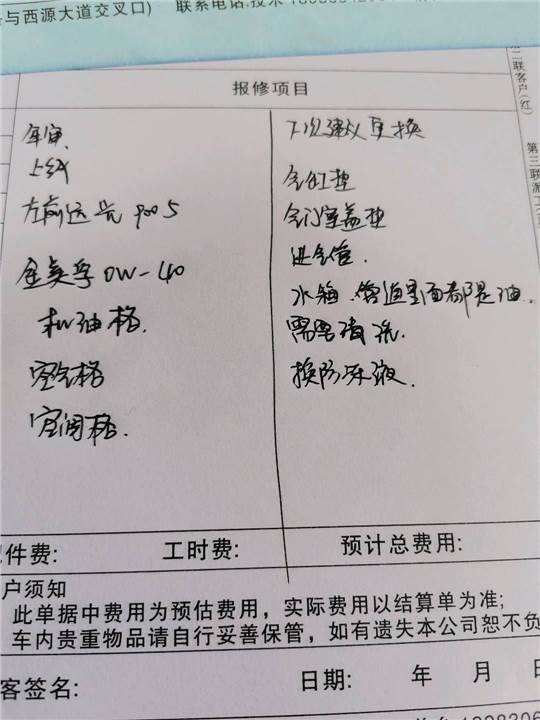 与西源大道交叉口)
联系电话:技术
二联客户(红)
第三联派工
报修项目
年审
上线
左前远光 9005
金美孚 0W-40
机油格.
空气格
空调格.
下次建议更换
气缸垫
气门室盖垫
进气管.
水箱.管道里面都是油.
需要清洗.
换防冻液.
件费:
工时费:
预计总费用:
户须知
此单据中费用为预估费用，实际费用以结算单为准;
车内贵重物品请自行妥善保管，如有遗失本公司恕不负
客签名:
日期: 年 月 日